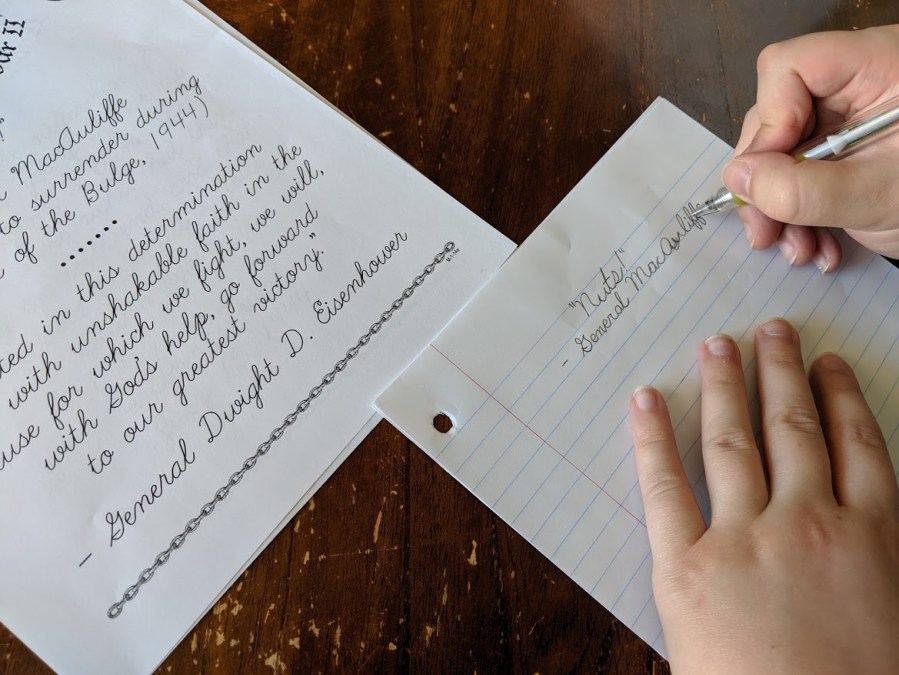 ar II
"
MacAuliffe
to surrender during
of the Bulge, 1944)
.......
ted in this determination
with unshakable faith in the
use for which we fight, we will,
with God's help, go forward
to our greatest victory."
- General Dwight D. Eisenhower
"Nuts!"
- General MacAuliffe